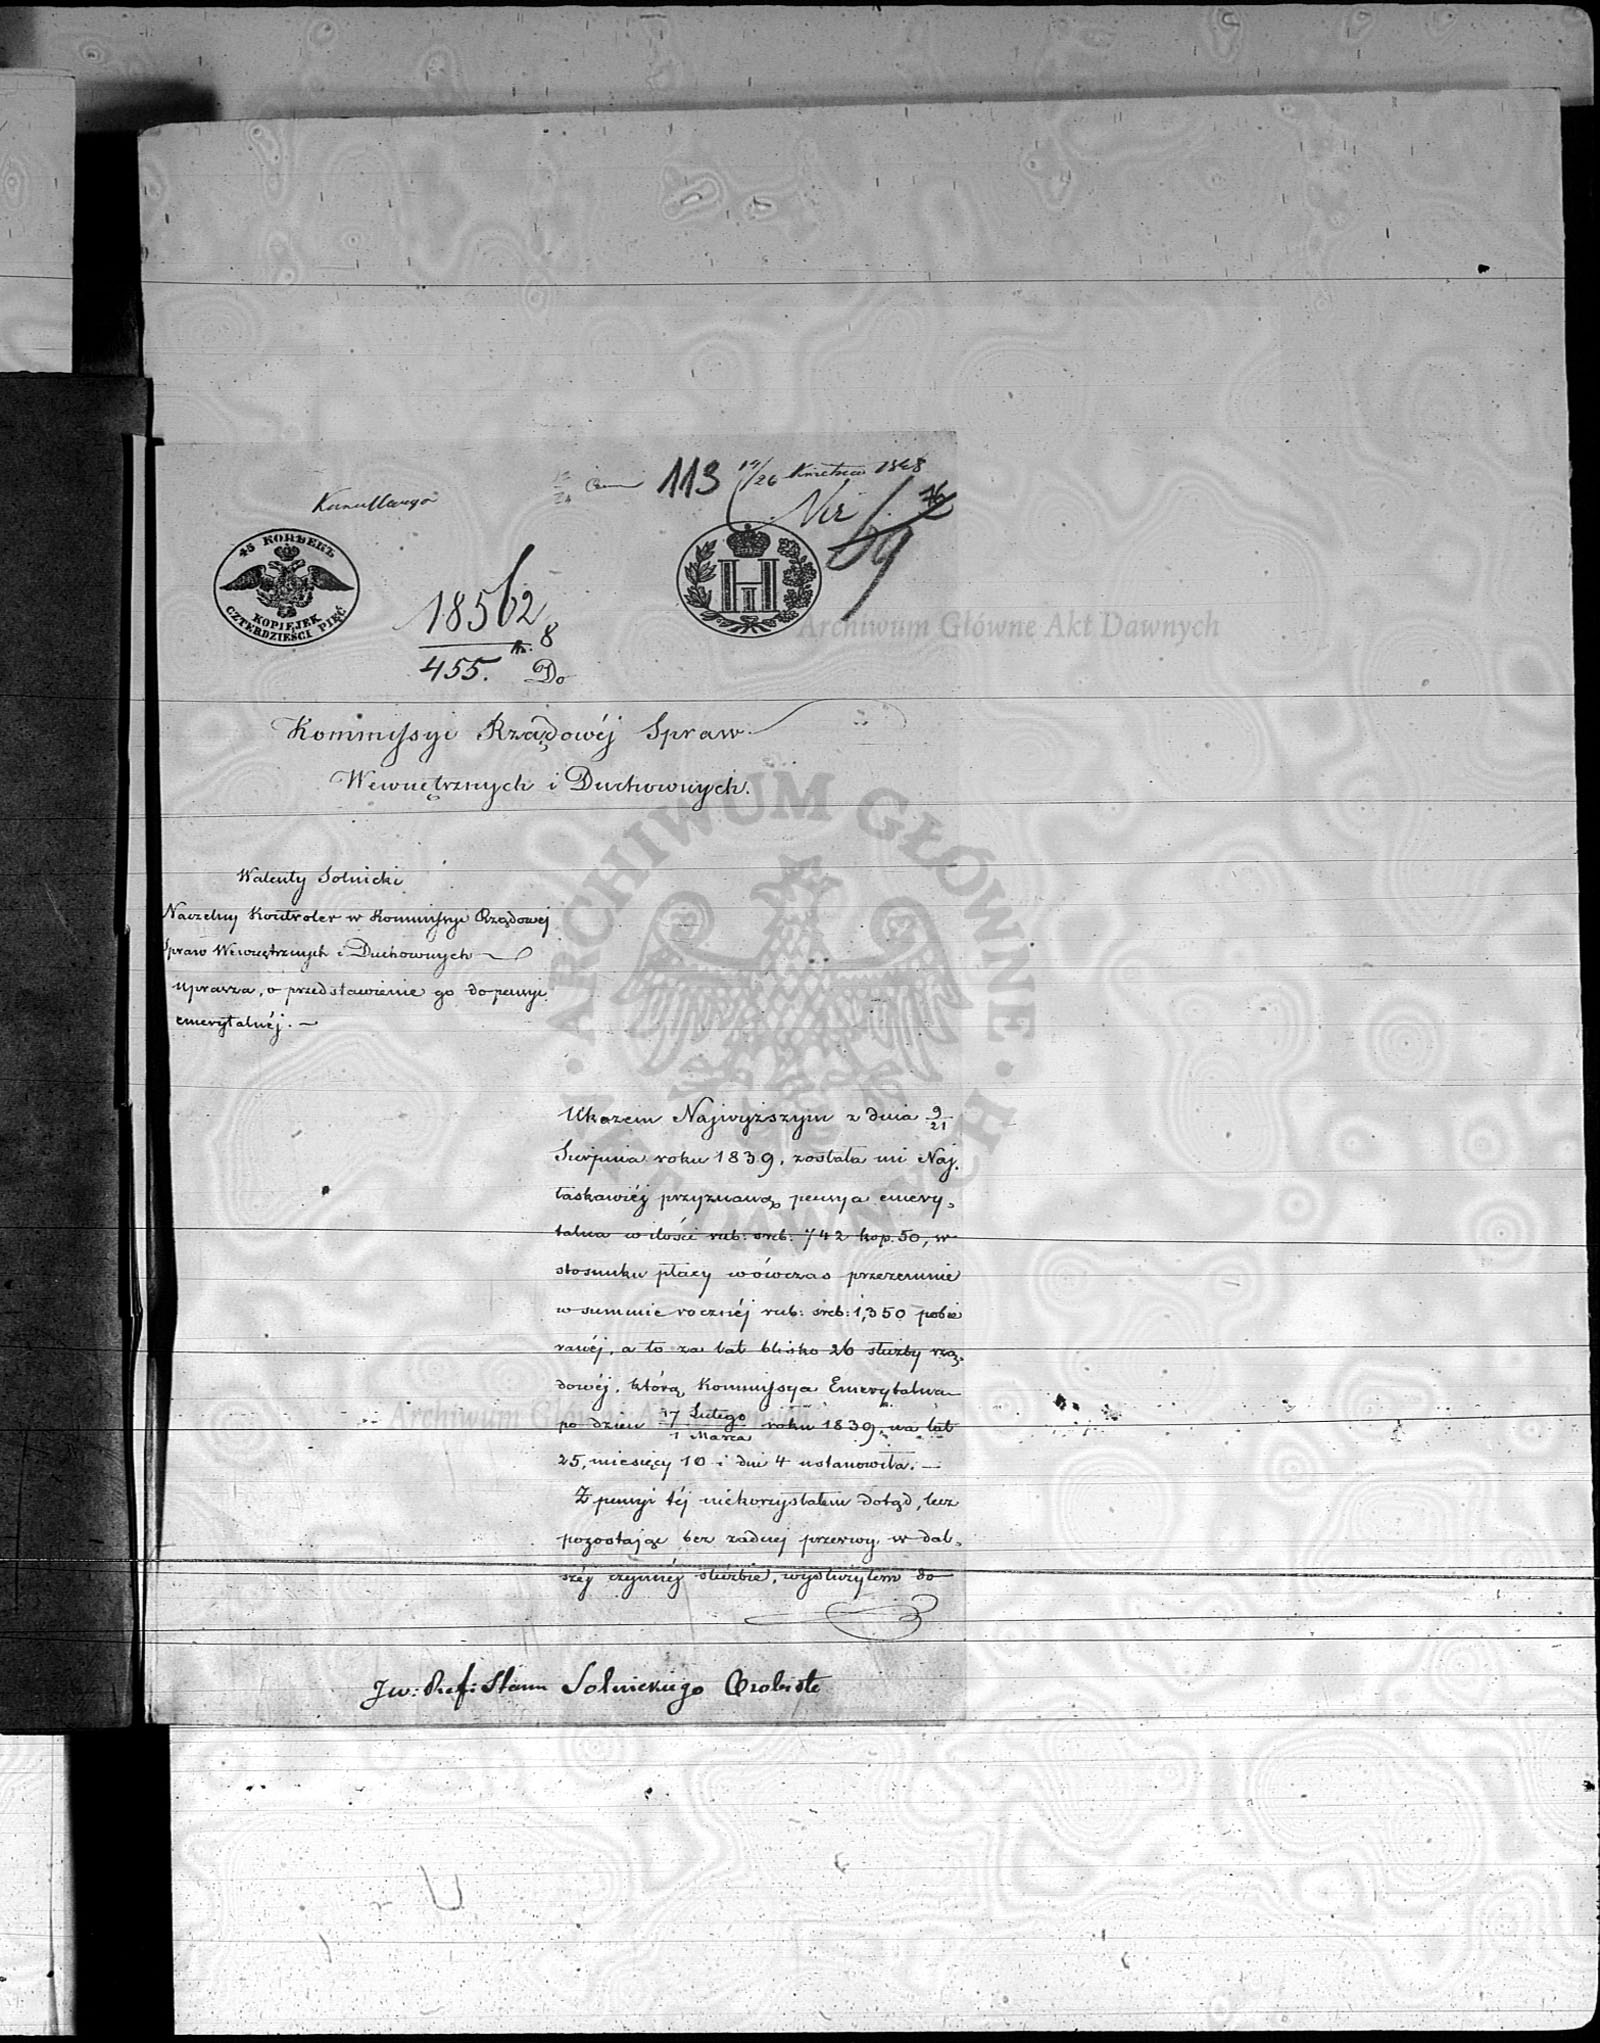 113 14/26 Kwietnia 1848
Nr 76
69
45 КОПѢЕКЪ
KOPIEJEK
CZTERDZIEŚCI PIĘĆ
H I
18562
455. 8
Do
Kommissyi Rządowéj Spraw
Wewnętrznych i Duchownych.
Walenty Solnicki
Naczelny Kontroler w Kommissyi Rządowej
Spraw Wewnętrznych i Duchownych
uprasza, o przedstawienie go do pensyi
emerytalnéj. —
Ukazem Najwyższym z dnia 9/21
Sierpnia roku 1839, została mi Naj,
łaskawiéj przyznaną pensya emery,
talna w ilości rub: sreb: 742 kop. 50, w
stosunku płacy wówczas przezemnie
w summie rocznéj rub: sreb: 1,350 pobie
ranéj, a to za lat blisko 26 służby rzą,
dowéj, którą Kommissya Emerytalna
po dzień 17 Lutego/1 Marca roku 1839, na lat
25, miesięcy 10 i dni 4 ustanowiła. —
Z pensyi téj niekorzystałem dotąd, lecz
pozostając bez żadnej przerwy w dal,
széj czynnéj służbie, wysłużyłem do
Jw: Ref: Stanu Solnickiego Osobiste
Archiwum Główne Akt Dawnych
ARCHIWUM GŁÓWNE AKT DAWNYCH
Archiwum Główne Akt Dawnych